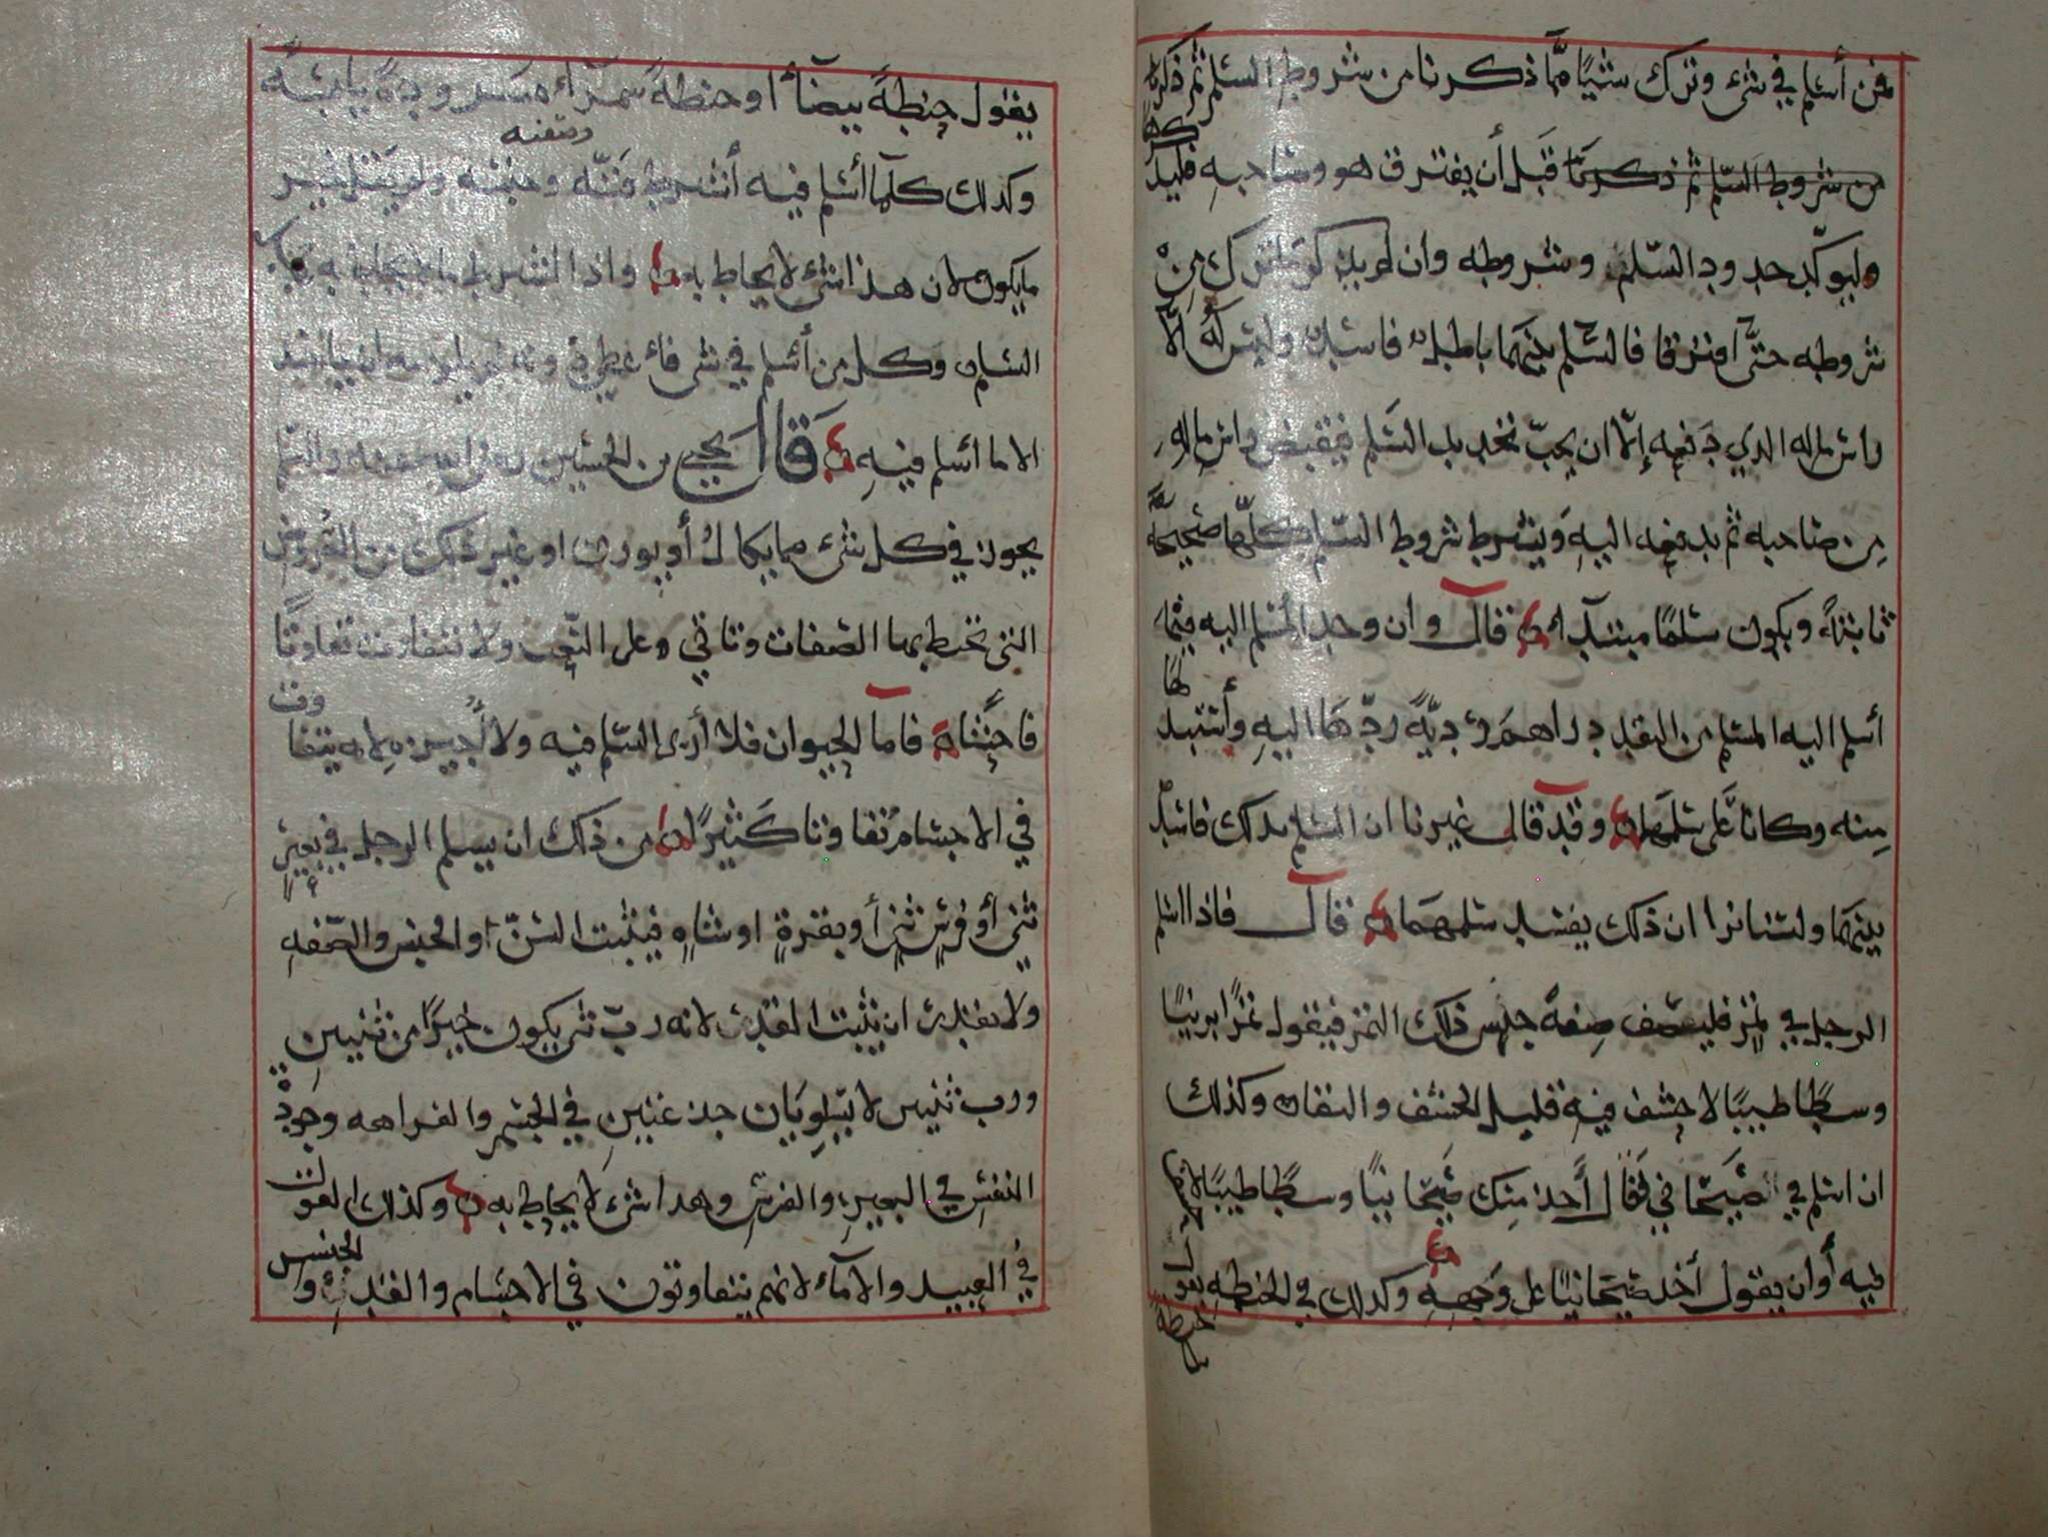 فمن أسلم في شيء وترك شيئا مما ذكرنا من شروط السلم ثم ذكره
من شروط السلم ثم ذكرنا قبل أن يفترق هو وصاحبه فليذكره
وليوكد حدود السلم وشروطه وان لم يذكر ما ترك من
شروطه حتى افترقا فالسلم بينهما باطل فاسد وليس له الا
راس ماله الذي دفعه إلا ان يحب تجديد السلم فيقبض راس ماله
من صاحبه ثم يدفعه اليه ويشرط شروط السلم كلها صحيحة
ثابتة ويكون سلما مبتدأ قال وان وجد المسلم اليه فيما
أسلم اليه المسلم من النقد دراهم رديّة ردها اليه وأستبدلها
منه وكانا على سلمهما وقد قال غيرنا ان السلم بذلك فاسد
بينهما ولسنا نرا ان ذلك يفسد سلمهما قال فاذا اسلم
الرجل في تمر فليصف صفة جنس ذلك التمر فيقول تمرا برنيا
وسطا طيبا لا حشف فيه قليل الحشف والنفاث وكذلك
ان اسلم في صيحاني فقال أخذ منك صيحانيا وسطا طيبا لا حشف
فيه أو ان يقول أخذ صيحانيا على وجهه وكذلك في الحنطه يقول حنطة
يقول حنطة بيضاء او حنطة سمراء
وكذلك كلما أسلم فيه أشرط منه وصفته وجنسه ولم يقل خير
ما يكون لان هذا شيء لا يحاط به واذا اشرط ما لا يحاط به
السلم وكل من أسلم في شيء
الا ما اسلم فيه قال يحيى بن الحسين والسلم
يجوز في كل شيء مما يكال أو يوزن او غير ذلك من العروض
التي تحيط بها الصفات وتاتي وعلى النعت ولا تتفاوت تفاوتا
فاحشا فاما الحيوان فلا أرى السلم فيه ولا أجيزه لانه يتفاوت
في الاجسام تفاوتا كثيرا من ذلك ان يسلم الرجل في بعير
ثني أو فرس ثني أو بقرة او شاه فيثبت السن او الجنس والصفه
ولا يقدر ان يثبت القدر لانه رب ثني يكون خيرا من ثنيين
ورب ثنيين لا يسويان جذعين في الجسم والفراهه وجودة
النفس في البعير والفرس وهذا شيء لا يحاط به وكذلك القول
في العبيد والامآء لانهم يتفاوتون في الاجسام والقدر والجنس